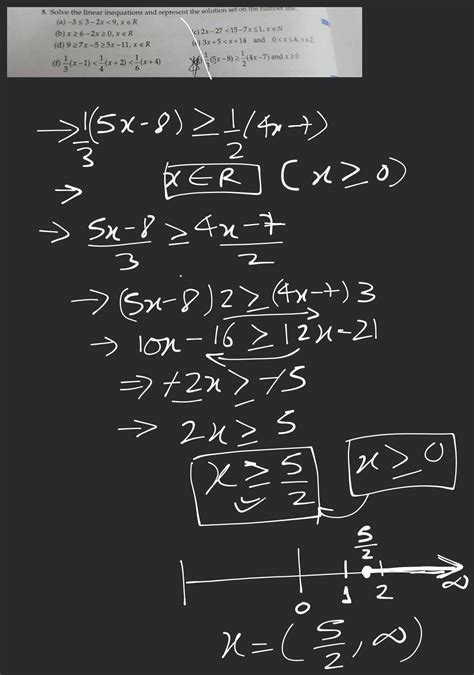 5. Solve the linear inequations and represent the solution set on the number line.
(a) −3 ≤ 3 − 2x < 9, x ∈ R
(b) x ≥ 6 − 2x ≥ 0, x ∈ R
(c) 2x − 27 < 15 − 7x ≤ 1, x ∈ N
(d) 9 ≥ 7x − 5 ≥ 5x − 11, x ∈ R
3x + 5 < x + 14 and 0 < x ≤ 4, x ∈ Z
(f) 1/3 (x − 1) < 1/4 (x + 2) < 1/6 (x + 4)
1/3 (5x − 8) ≥ 1/2 (4x − 7) and x ≥ 0
→ 1/3 (5x − 8) ≥ 1/2 (4x − 7)
→ x ∈ R (x ≥ 0)
→ 5x − 8 / 3 ≥ 4x − 7 / 2
→ (5x − 8) 2 ≥ (4x − 7) 3
→ 10x − 16 ≥ 12x − 21
⇒ −2x ≥ −5
→ 2x ≥ 5
x ≥ 5/2 x ≥ 0
5/2
0 1 2 ∞
x = ( 5/2 , ∞ )